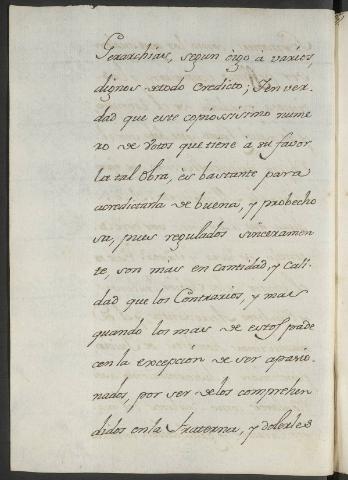 Gerarchias, segun oigo à varios,
dignos de todo credito; Y en ver-
dad que este copiossissimo nume
ro de votos que tiene à su favor
la tal Obra, es bastante para
acreditarla de buena, y probecho
sa, pues regulados sinceramen
te, son mas en cantidad, y cali-
dad que los Contrarios, y mas
quando los mas de estos pade
cen la excepcion de ser apasio-
nados, por ser de los comprehen
didos en la Fraterna, y dolerles